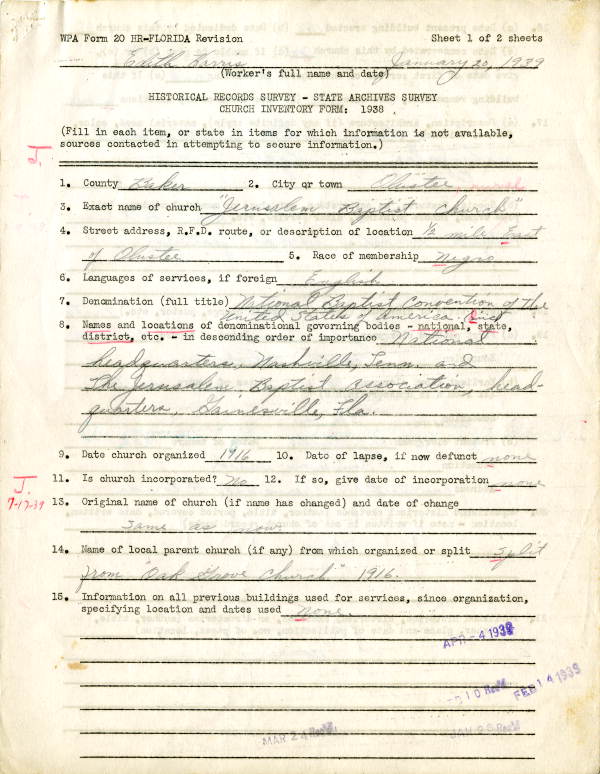 WPA Form 20 HR-FLORIDA Revision Sheet 1 of 2 sheets
Edith Farris January 20, 1939
(Worker's full name and date)
HISTORICAL RECORDS SURVEY - STATE ARCHIVES SURVEY
CHURCH INVENTORY FORM: 1938
(Fill in each item, or state in items for which information is not available,
sources contacted in attempting to secure information.)
J.
1. County Baker 2. City or town Olustee
3. Exact name of church "Jerusalem Baptist Church"
4. Street address, R.F.D. route, or description of location 1/2 mile East
of Olustee 5. Race of membership Negro
6. Languages of services, if foreign English
7. Denomination (full title) National Baptist Convention of the
United States of America (Inc)
8. Names and locations of denominational governing bodies - national, state,
district, etc. - in descending order of importance National
headquarters, Nashville, Tenn. and
The Jerusalem Baptist Association, head-
quarters, Gainesville, Fla.
9. Date church organized 1916 10. Date of lapse, if now defunct none
11. Is church incorporated? No 12. If so, give date of incorporation none
J.
7-17-39
13. Original name of church (if name has changed) and date of change
Same as now
14. Name of local parent church (if any) from which organized or split Split
from "Oak Grove Church" 1916.
15. Information on all previous buildings used for services, since organization,
specifying location and dates used none.
APR -4 1939
FEB 14 1939
MAR 24 Rec'd.
JAN 28 Rec'd